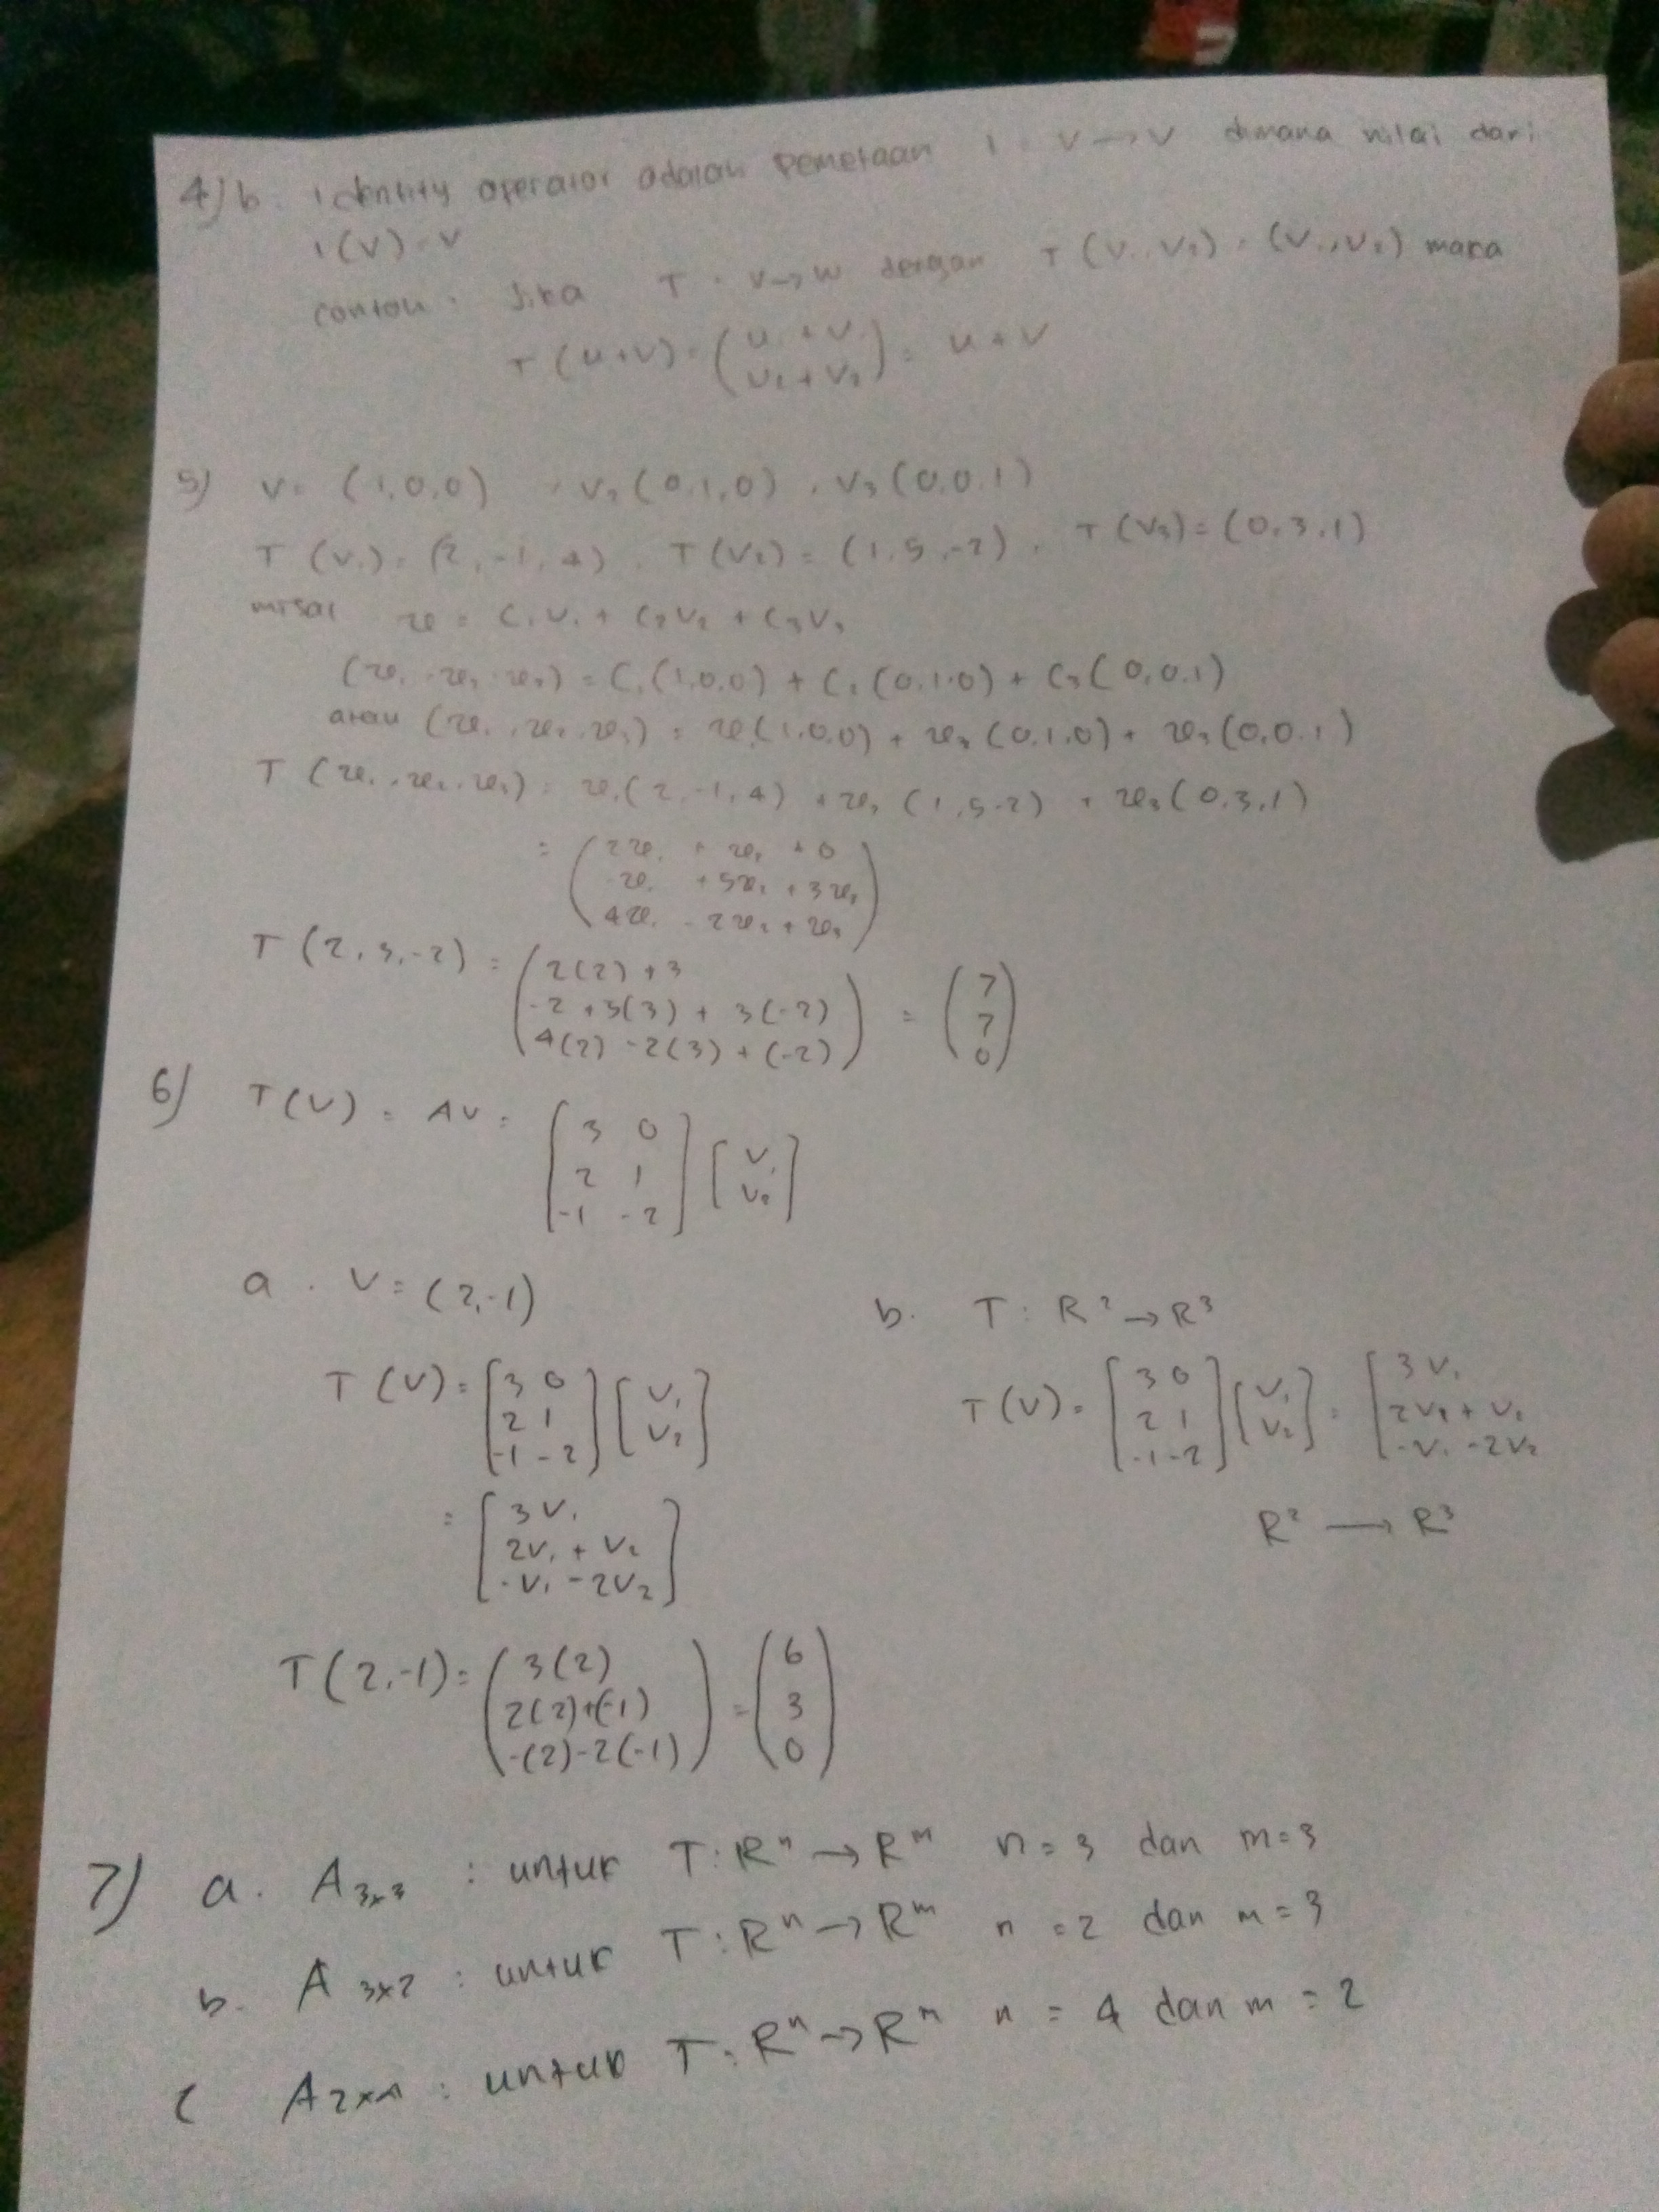 4) b. Identity operator adalah Pemetaan I : V → V dimana nilai dari
I(V) = V
contoh : Jika T : V → W dengan T(V₁, V₂) = (V₁, V₂) maka
T(u+v) = (u₁ + v₁ / u₂ + v₂) = u + v
5) V₁ = (1,0,0) , V₂(0,1,0) , V₃(0,0,1)
T(V₁) = (2,-1,4) , T(V₂) = (1,5,-2) , T(V₃) = (0,3,1)
misal x = C₁V₁ + C₂V₂ + C₃V₃
(x₁, x₂, x₃) = C₁(1,0,0) + C₂(0,1,0) + C₃(0,0,1)
atau (x₁, x₂, x₃) = x₁(1,0,0) + x₂(0,1,0) + x₃(0,0,1)
T(x₁, x₂, x₃) = x₁(2,-1,4) + x₂(1,5,-2) + x₃(0,3,1)
= (2x₁ + x₂ + 0
-x₁ + 5x₂ + 3x₃
4x₁ - 2x₂ + x₃)
T(2,3,-2) = (2(2) + 3
-2 + 5(3) + 3(-2) = (7 7 0)
4(2) - 2(3) + (-2))
6) T(V) = AV = [3 0 / 2 1 / -1 -2] [V₁ / V₂]
a. V = (2,-1)
T(V) = [3 0 / 2 1 / -1 -2] [V₁ / V₂]
= [3V₁ / 2V₁ + V₂ / -V₁ - 2V₂]
T(2,-1) = (3(2) / 2(2)+(-1) / -(2)-2(-1)) = (6 / 3 / 0)
b. T : R² → R³
T(V) = [3 0 / 2 1 / -1 -2] [V₁ / V₂] = [3V₁ / 2V₁ + V₂ / -V₁ - 2V₂
R² → R³
7) a. A₃ₓ₃ : untuk T : Rⁿ → Rᵐ n = 3 dan m = 3
b. A₃ₓ₂ : untuk T : Rⁿ → Rᵐ n = 2 dan m = 3
c A₂ₓ₄ : untuk T : Rⁿ → Rᵐ n = 4 dan m = 2